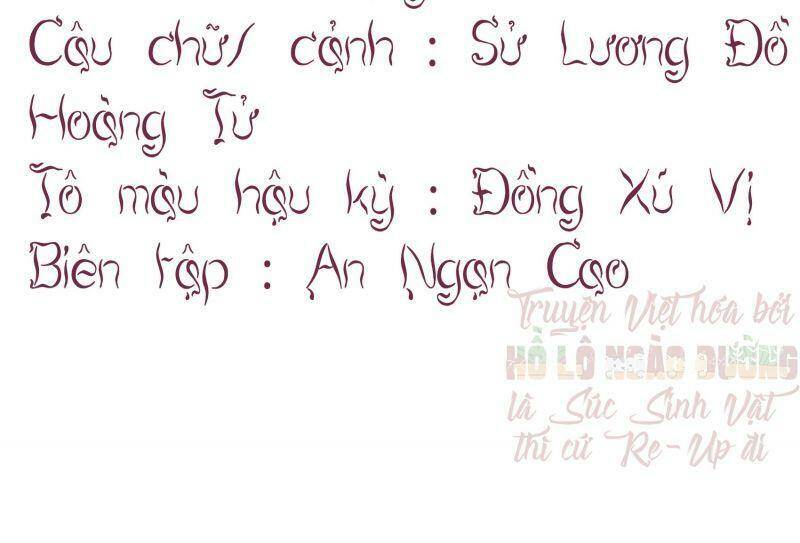 Câu chữ/ cảnh : Sử Lương Đồ
Hoàng Tử
Tô màu hậu kỳ : Đồng Xú Vị
Biên tập : An Ngạn Cạo
Truyện Việt hóa bởi
HỒ LÔ NGÀO ĐƯỜNG
là Súc Sinh Vật
thì cứ Re-Up đi